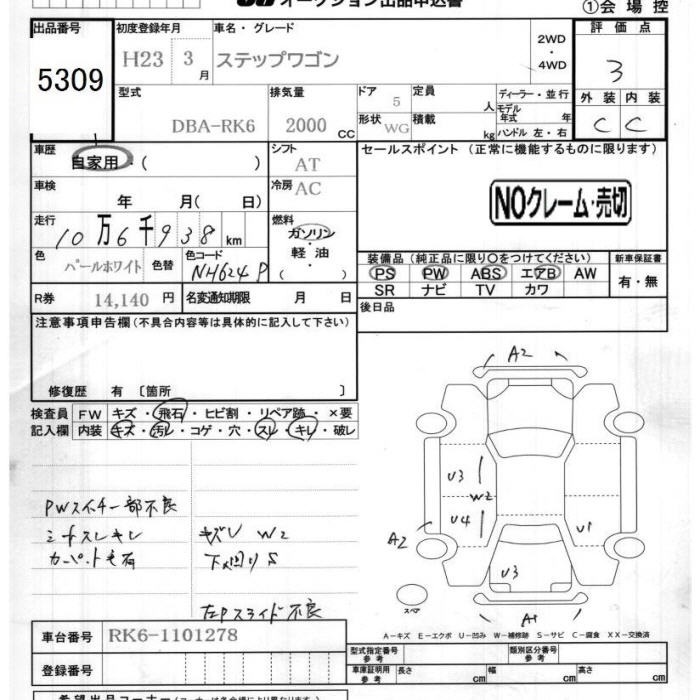 オークション出品申込書
①会場控
出品番号
5309
初度登録年月
H23 3 月
車名・グレード
ステップワゴン
2WD
・
4WD
評価点
3
型式
DBA-RK6
排気量
2000 CC
ドア
5
定員
人
形状 WG
積載
kg
ディーラー・並行
モデル年式 年
ハンドル 左・右
外装 内装
C C
車歴
自家用・( )
シフト
AT
セールスポイント (正常に機能するものに限ります)
NOクレーム・売切
車検
年 月( 日)
冷房 AC
走行
10万6千938 km
燃料
ガソリン・
軽油
( )
色
パールホワイト
色替
色コード
NH624P
装備品(純正品に限り〇をつけてください)
PS PW ABS エアB AW
SR ナビ TV カワ
新車保証書
有・無
R券 14,140 円
名変通知期限 月 日
後日品
注意事項申告欄(不具合内容等は具体的に記入して下さい)
修復歴 有 [箇所 ]
検査員
記入欄
FW キズ・飛石・ヒビ割・リペア跡・×要
内装 キズ・汚レ・コゲ・穴・スレ・キレ・破レ
PWスイッチ一部不良
シートスレキレ
カーペット毛有
キズU W2
下廻りS
左Pスライド不良
A2
U3
W2
U4
A2
U1
U3
スペア
A1
A-キズ E-エクボ U-凹み W-補修跡 S-サビ C-腐食 XX-交換済
車台番号 RK6-1101278
登録番号
型式指定番号
参考
類別区分番号
参考
車庫証明用
参考
長さ cm
幅 cm
高さ cm
希望出品コーナー